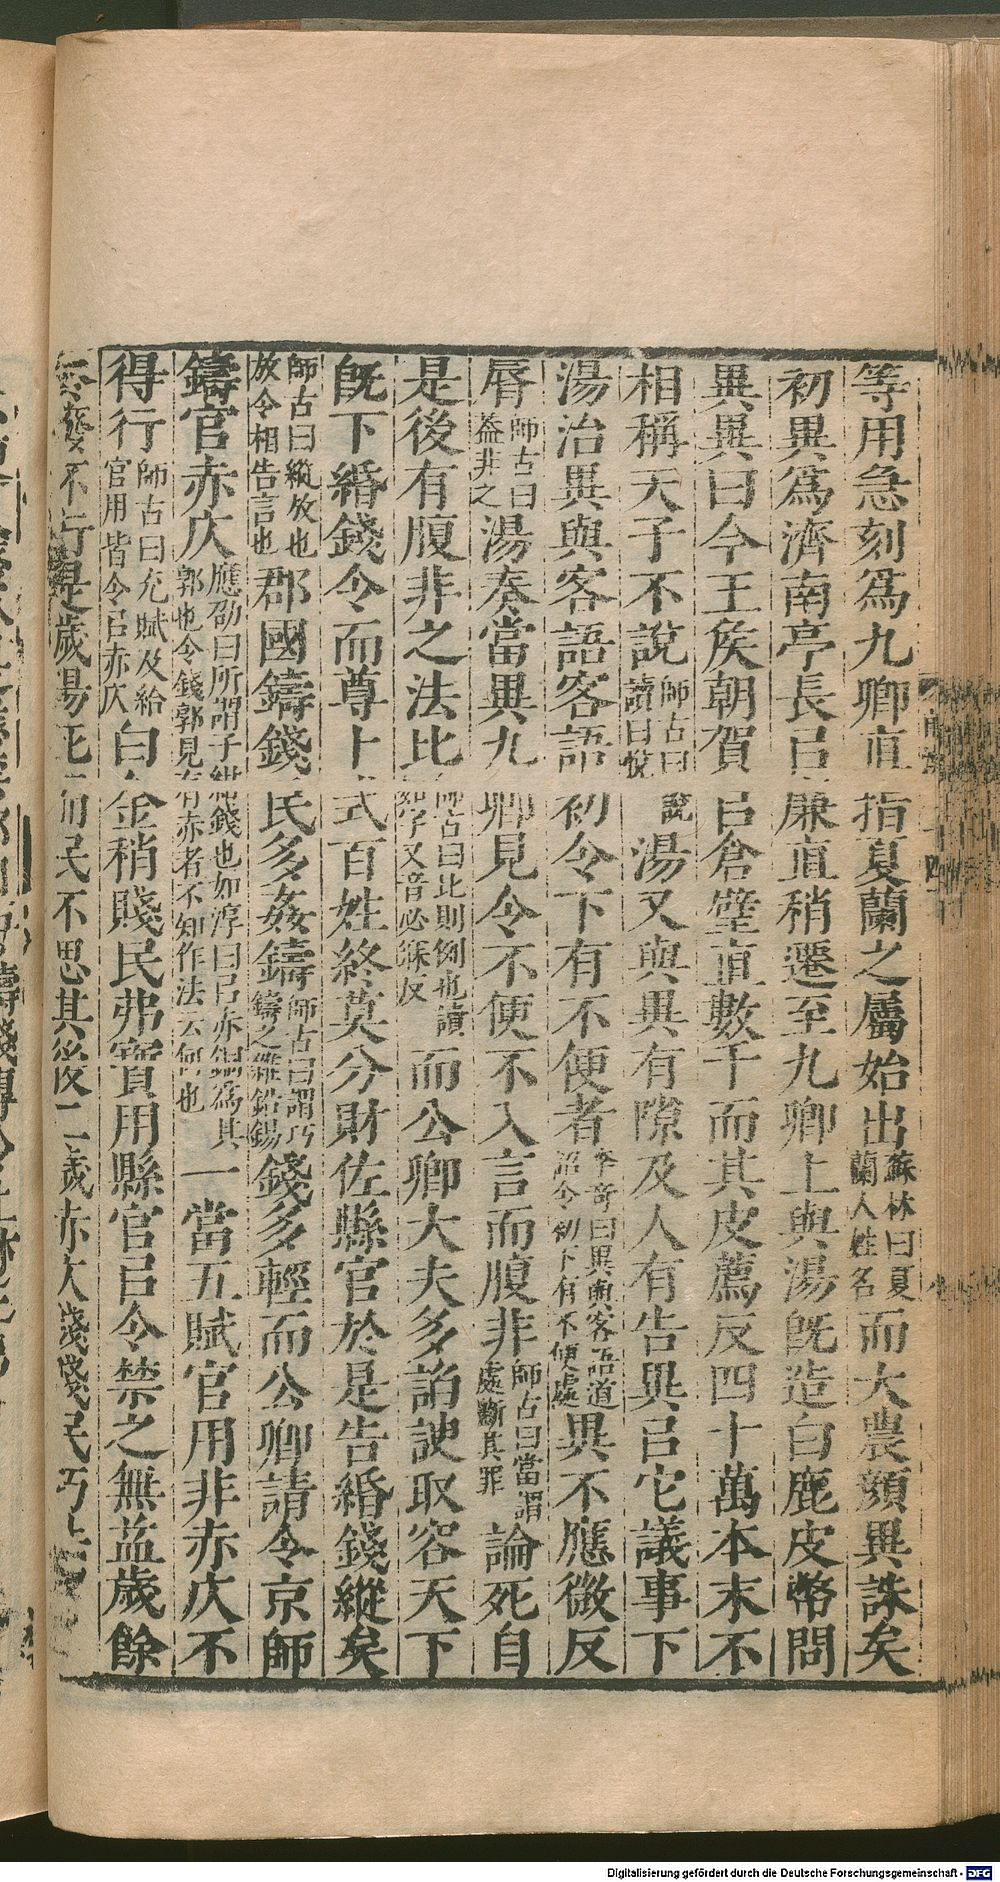 等用急刻爲九卿直指夏蘭之屬始出蘇林曰夏蘭人姓名而大農顏異誅矣
初異爲濟南亭長㠯廉直稍遷至九卿上與湯旣造白鹿皮幣問
異異曰今王矦朝賀㠯倉璧直數千而其皮薦反四十萬本末不
相稱天子不說師古曰說讀曰悅湯又與異有隙及人有告異㠯它議事下
湯治異與客語客語初令下有不便者李奇曰異與客語道詔令初下有不便處異不應微反
脣師古曰蓋非之湯奏當異九卿見令不便不入言而腹非師古曰當謂處斷其罪論死自
是後有腹非之法比師古曰比則例也讀如字又音必寐反而公卿大夫多諂諛取容天下
旣下緡錢令而尊卜式百姓終莫分財佐縣官於是告緡錢縱矣
師古曰縱放也放令相告言也郡國鑄錢民多姦鑄師古曰謂巧鑄之雜鉛錫錢多輕而公卿請令京師
鑄官赤仄應劭曰所謂子紺錢也如淳曰㠯赤銅爲其郭也今錢郭見有赤者不知作法云何也一當五賦官用非赤仄不
得行師古曰充賦及給官用皆令㠯赤仄白金稍賤民弗寶用縣官㠯令禁之無益歲餘
不行是歲湯死而民不思其後二歲赤仄錢賤民巧法
Digitalisierung gefördert durch die Deutsche Forschungsgemeinschaft - DFG